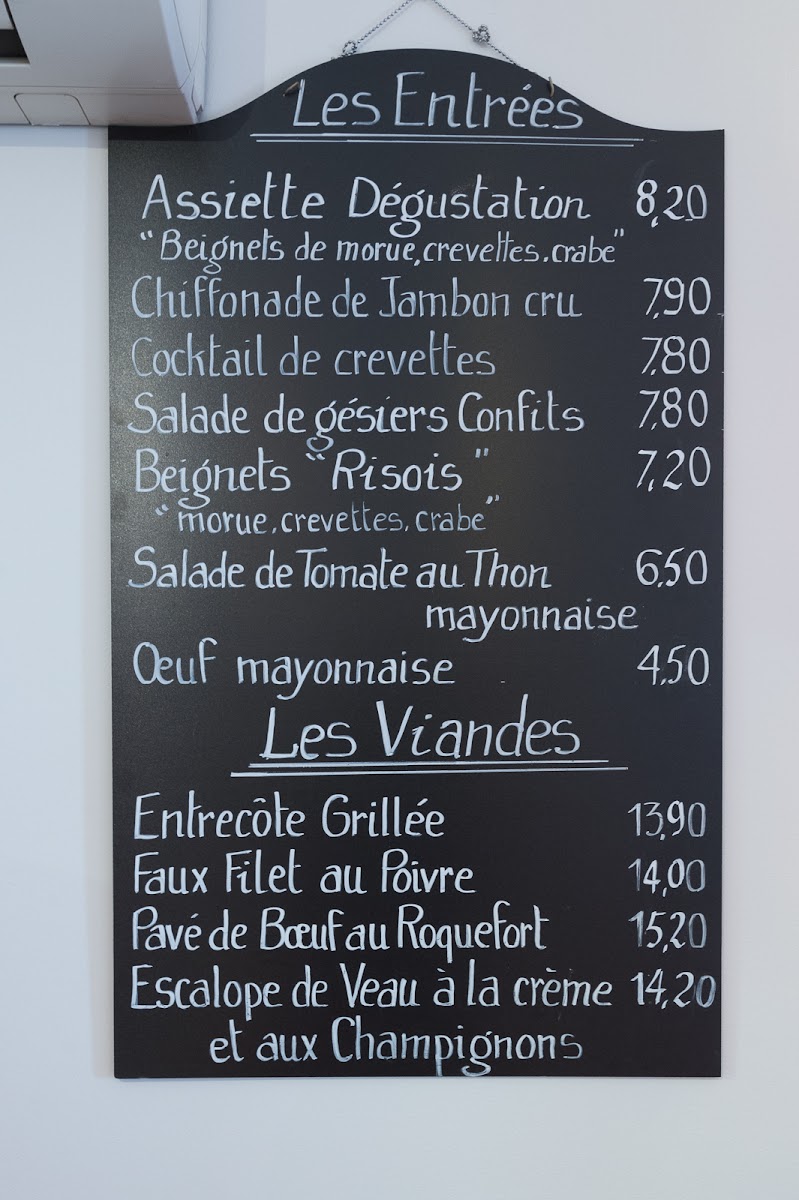 Les Entrées
Assiette Dégustation 8,20
"Beignets de morue, crevettes. crabe"
Chiffonade de Jambon cru 7,90
Cocktail de crevettes 7,80
Salade de gésiers Confits 7,80
Beignets "Risois" 7,20
"morue, crevettes, crabe"
Salade de Tomate au Thon 6,50
mayonnaise
Œuf mayonnaise 4,50
Les Viandes
Entrecôte Grillée 13,90
Faux Filet au Poivre 14,00
Pavé de Bœuf au Roquefort 15,20
Escalope de Veau à la crème 14,20
et aux Champignons